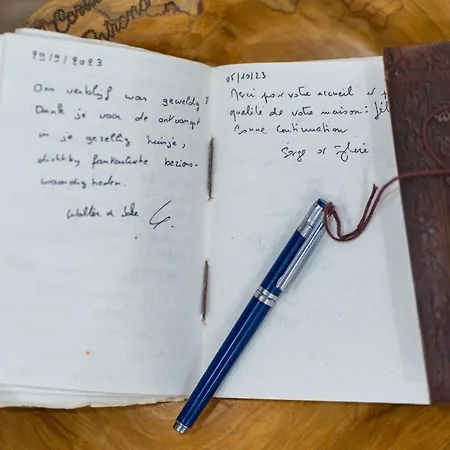 Patrons
29/9/2023
Ons verblijf was geweldig!
Dank je voor de ontvangst
in je gezellig huisje,
dichtbij fantastische beziens-
waardigheden.
Walter &
05/10/23
Merci pour votre accueil et
qualité de votre maison:
Bonne continuation
Serge et